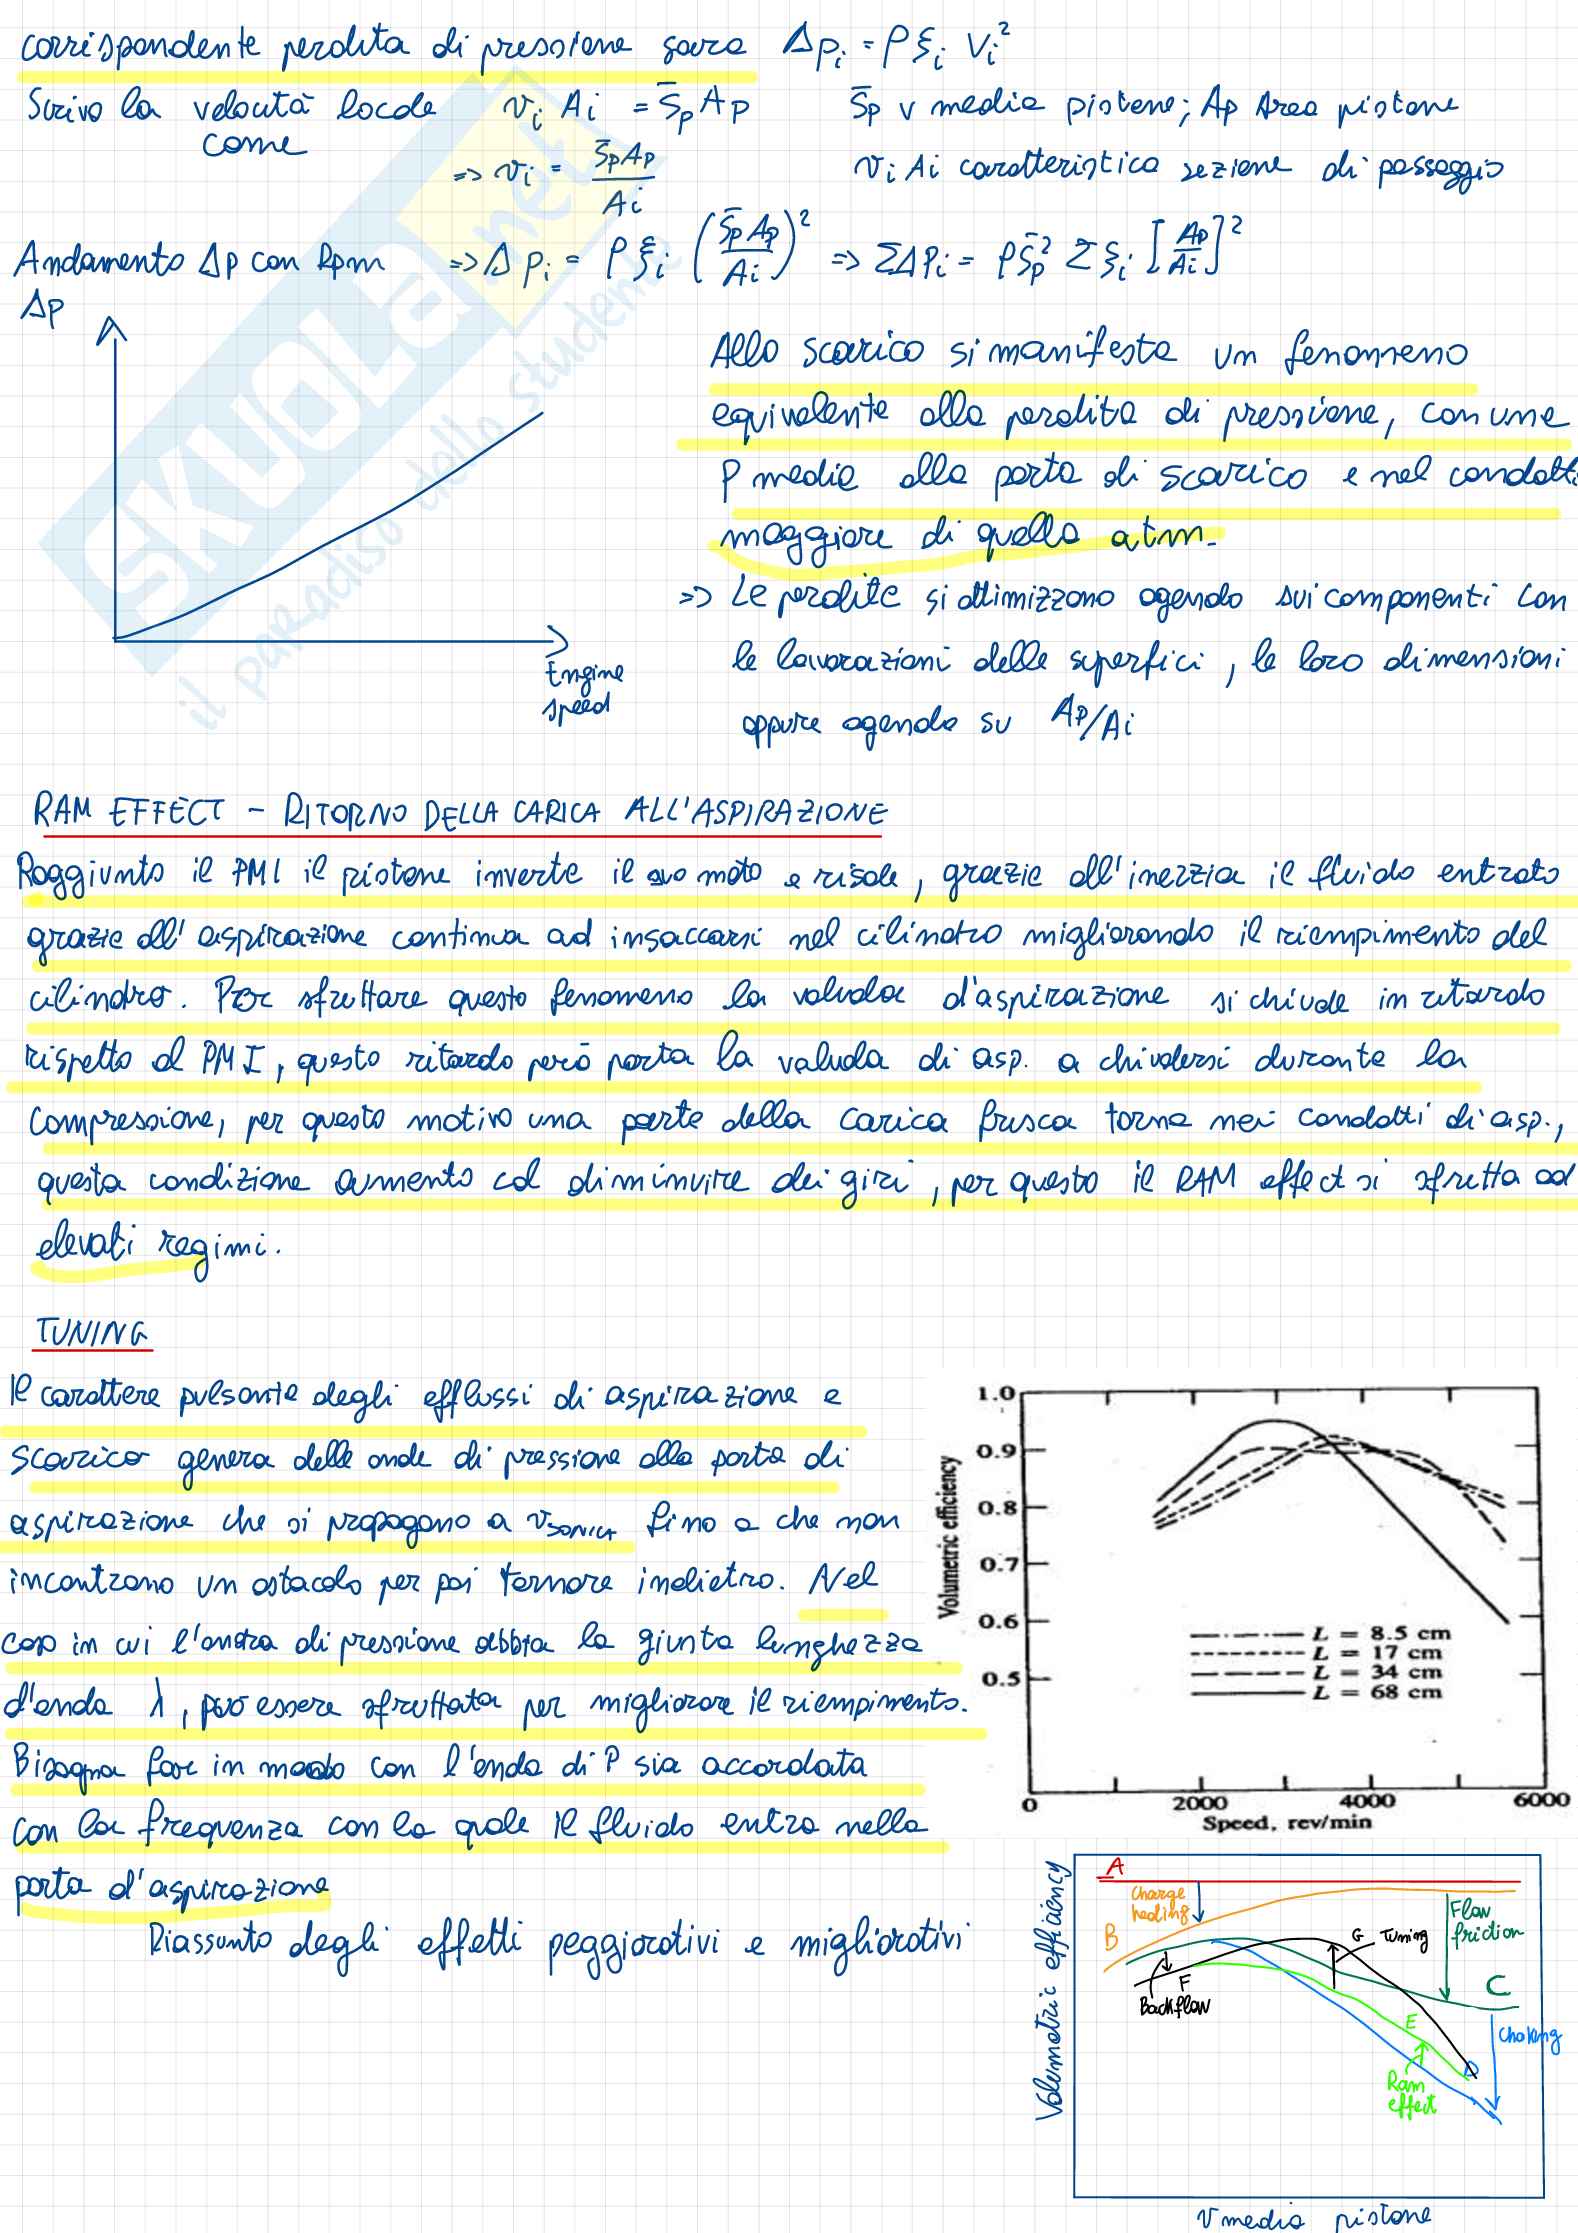 corrispondente perdita di pressione sara Δpᵢ = ρ ξᵢ Vᵢ²
Scrivo la velocità locale vᵢ Aᵢ = S̄p Ap S̄p v media pistone; Ap Area pistone
come => vᵢ = S̄pAp / Ai vᵢ Ai caratteristica sezione di passaggio
Andamento Δp con Rpm => Δpᵢ = ρ ξᵢ (S̄p Ap / Ai)² => ΣΔPᵢ = ρ S̄p² Σ ξᵢ [Ap / Ai]²
Δp
Engine
speed
Allo scarico si manifesta un fenomeno
equivalente alla perdita di pressione, con una
P media alla porta di scarico e nel condotti
maggiore di quella atm.
=> Le perdite si ottimizzano agendo sui componenti con
le lavorazioni delle superfici, le loro dimensioni
oppure agendo su Ap/Ai
SKUOLA.net
il paradiso dello studente
RAM EFFECT - RITORNO DELLA CARICA ALL'ASPIRAZIONE
Raggiunto il PMI il pistone inverte il suo moto e risale, grazie all'inerzia il fluido entrato
grazie all'aspirazione continua ad insaccarsi nel cilindro migliorando il riempimento del
cilindro. Per sfruttare questo fenomeno la valvola d'aspirazione si chiude in ritardo
rispetto al PMI, questo ritardo però porta la valvola di asp. a chiudersi durante la
compressione, per questo motivo una parte della carica fresca torna nei condotti di asp.,
questa condizione aumenta col diminuire dei giri, per questo il RAM effect si sfrutta ad
elevati regimi.
TUNING
Il carattere pulsante degli efflussi di aspirazione e
scarico genera delle onde di pressione alla porta di
aspirazione che si propagano a vSONICA fino a che non
incontrano un ostacolo per poi tornare indietro. Nel
caso in cui l'onda di pressione abbia la giusta lunghezza
d'onda λ, può essere sfruttata per migliorare il riempimento.
Bisogna far in modo con l'onda di P sia accordata
con la frequenza con la quale il fluido entra nella
porta d'aspirazione
Riassunto degli effetti peggiorativi e migliorativi
Volumetric efficiency
1.0
0.9
0.8
0.7
0.6
0.5
L = 8.5 cm
L = 17 cm
L = 34 cm
L = 68 cm
0 2000 4000 6000
Speed, rev/min
Volumetric efficiency
A
Charge
heating
B
Flow
friction
G Tuning
F
Backflow
C
E
Choking
D
Ram
effect
V media pistone